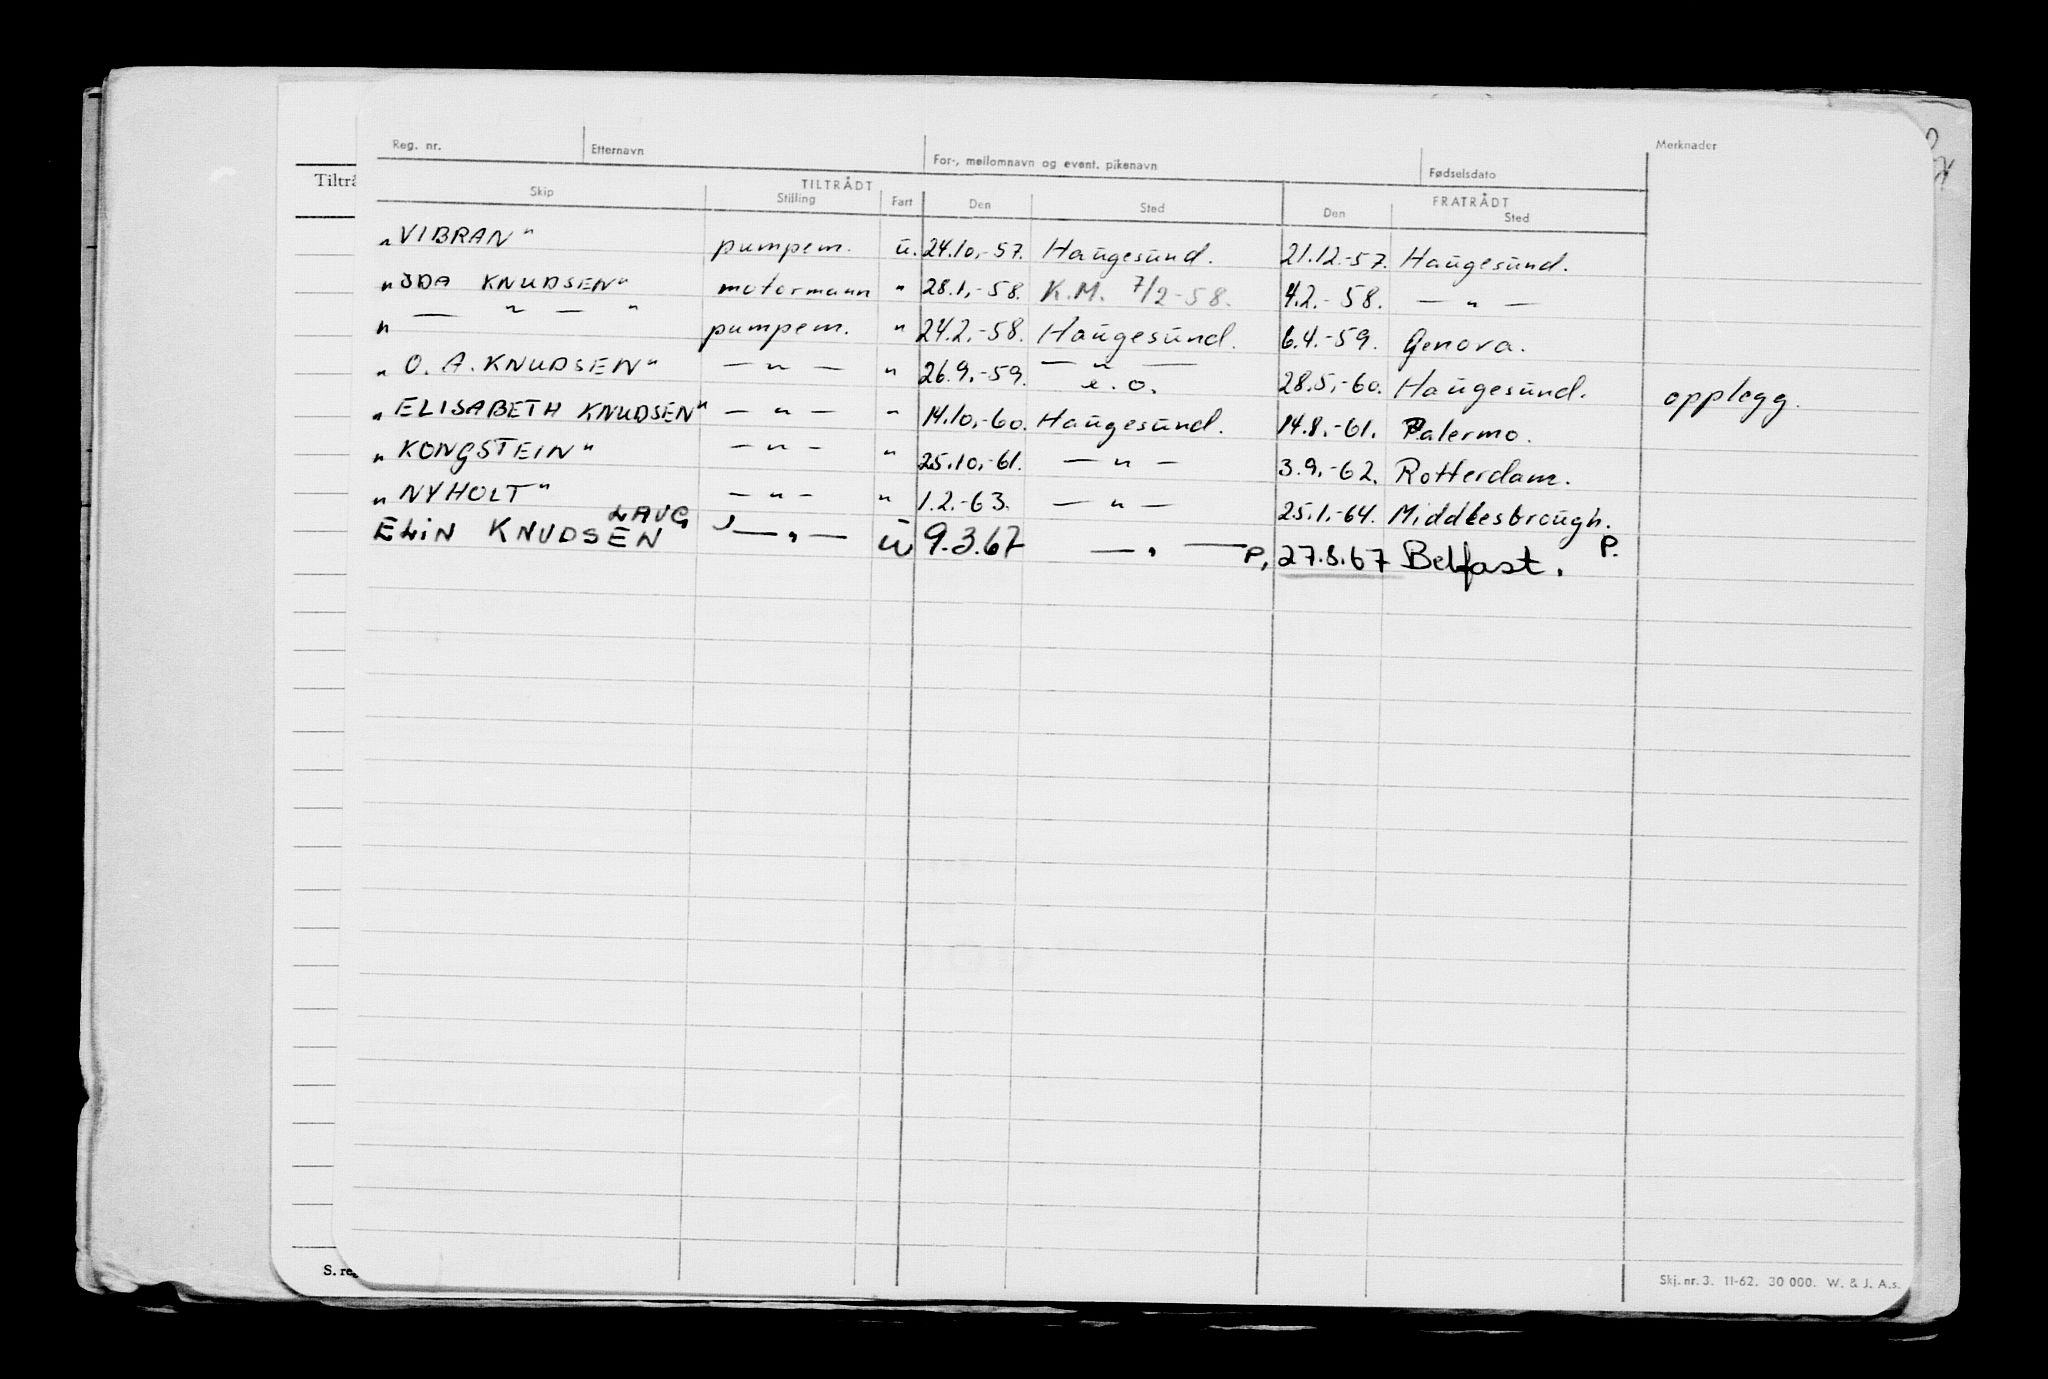 Reg. nr. Etternavn For-, mellomnavn og event. pikenavn Fødselsdato Merknader
Tiltrå
TILTRÅDT FRATRÅDT
Skip Stilling Fart Den Sted Den Sted
„VIBRAN" pumpem. u. 24.10.-57. Haugesund. 21.12.-57. Haugesund.
„IDA KNUDSEN" motormann " 28.1.-58. K.M. 7/2-58. 4.2.-58. — " —
" — " — " pumpem. " 24.2.-58. Haugesund. 6.4.-59. Genova.
„O. A. KNUDSEN" — " — " 26.9.-59. — " — e.o. 28.5.-60. Haugesund. opplegg.
„ELISABETH KNUDSEN" — " — " 14.10.-60. Haugesund. 14.8.-61. Palermo.
„KONGSTEIN" — " — " 25.10.-61. — " — 3.9.-62. Rotterdam.
„NYHOLT" — " — " 1.2.-63. — " — 25.1.-64. Middlesbrough.
LAUG
ELIN KNUDSEN — " — u 9.3.67 — " — P. 27.8.67 Belfast. P.
S. reg
Skj. nr. 3. 11-62. 30 000. W. & J. A.s.